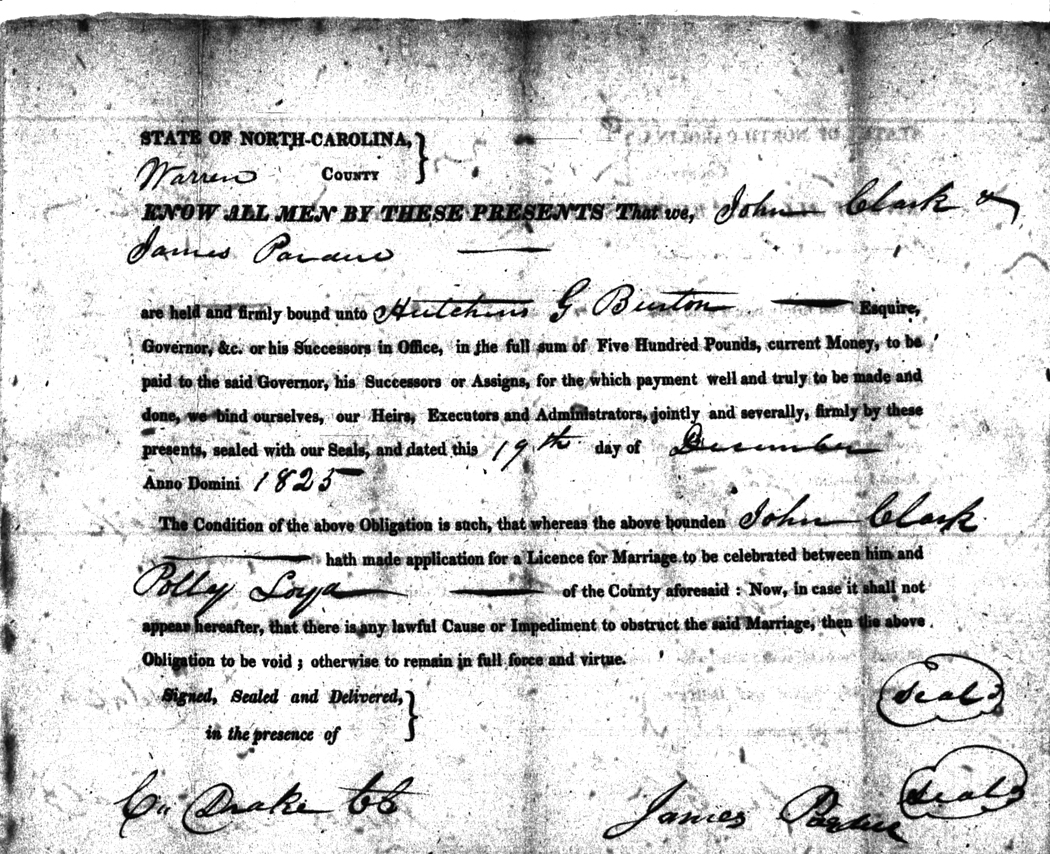 STATE OF NORTH-CAROLINA,
Warren COUNTY
KNOW ALL MEN BY THESE PRESENTS That we, John Clark &
James Pardue
are held and firmly bound unto Hutchins G. Burton Esquire,
Governor, &c. or his Successors in Office, in the full sum of Five Hundred Pounds, current Money, to be
paid to the said Governor, his Successors or Assigns, for the which payment well and truly to be made and
done, we bind ourselves, our Heirs, Executors and Administrators, jointly and severally, firmly by these
presents, sealed with our Seals, and dated this 19th day of December
Anno Domini 1825
The Condition of the above Obligation is such, that whereas the above bounden John Clark
hath made application for a Licence for Marriage to be celebrated between him and
Polley Loya of the County aforesaid : Now, in case it shall not
appear hereafter, that there is any lawful Cause or Impediment to obstruct the said Marriage, then the above
Obligation to be void ; otherwise to remain in full force and virtue.
Signed, Sealed and Delivered,
in the presence of
Seal
Seal
Drake CC
James Pardue